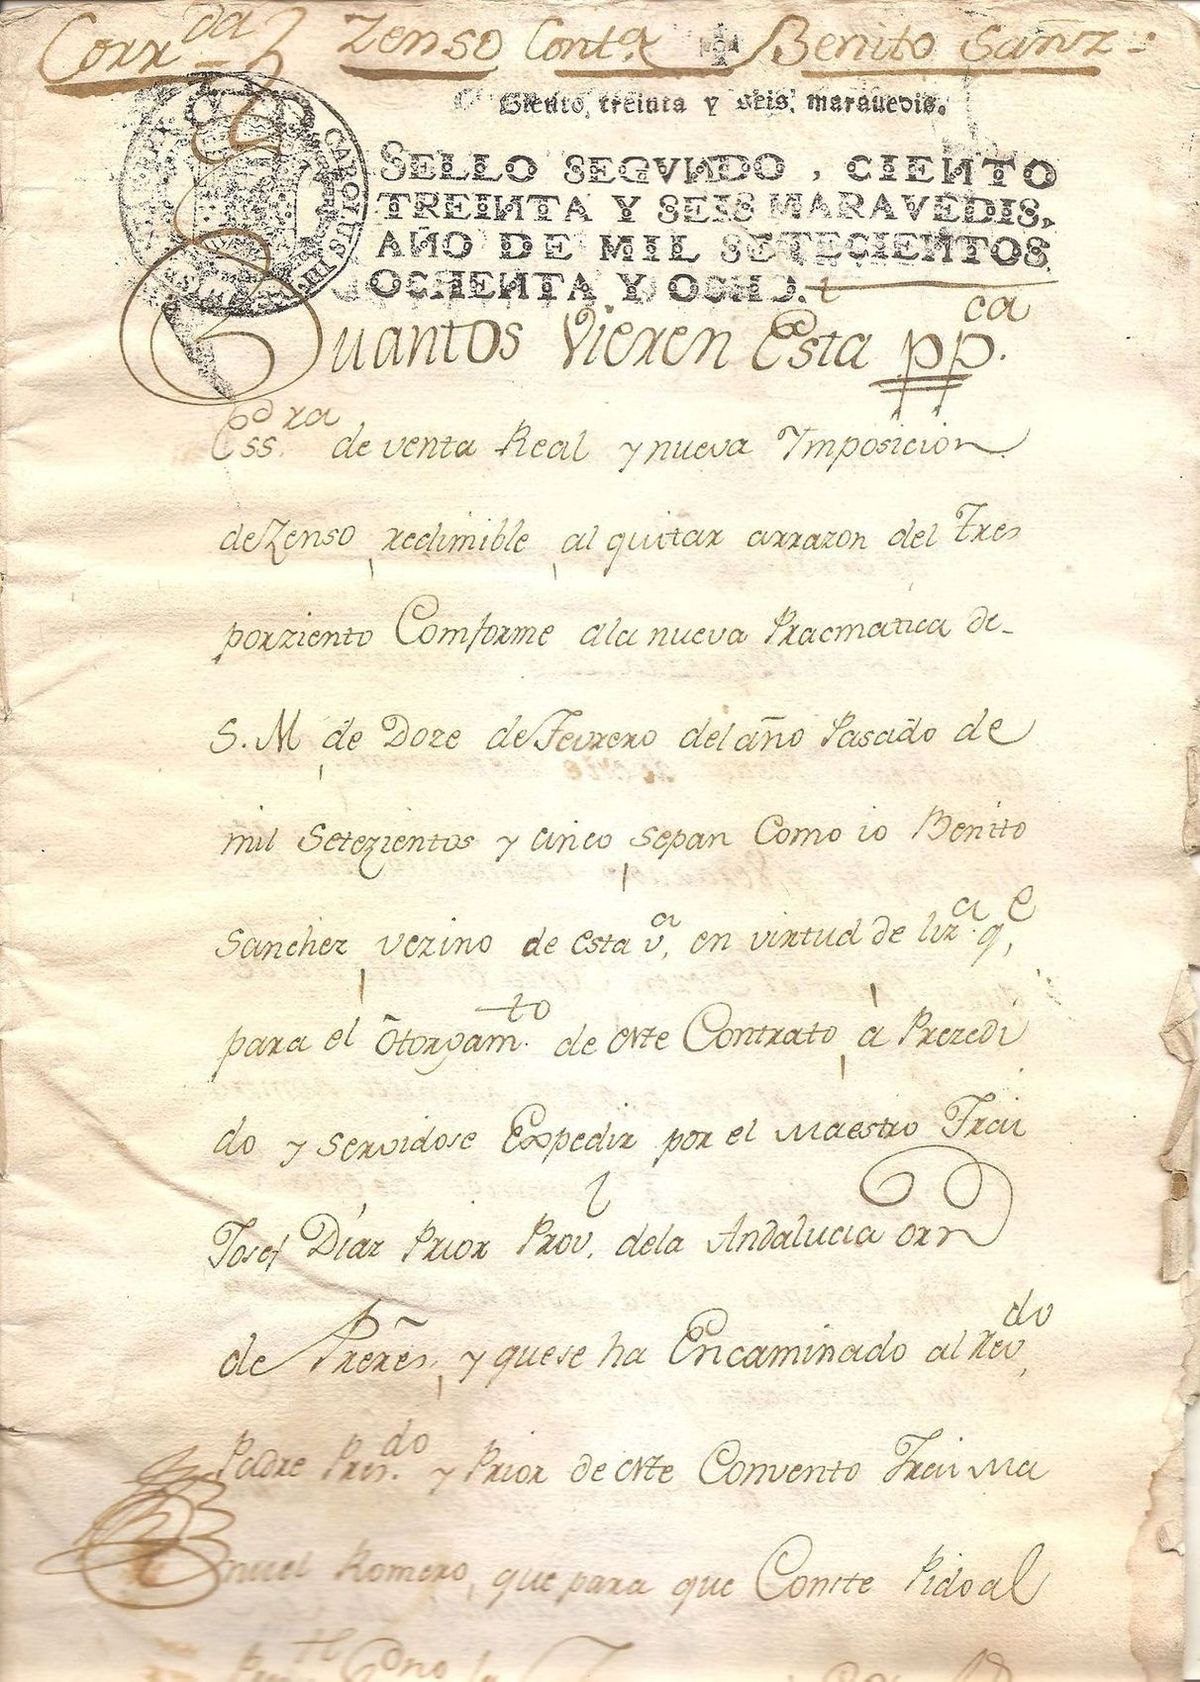 Corr.da Zenso Conta Benito Sanz
Ciento, treinta y seis, marauedis.
SELLO SEGVNDO, CIENTO
TREINTA Y SEIS MARAVEDIS,
AÑO DE MIL SETECIENTOS
OCHENTA Y OCHO.
CAROLUS III
Quantos Vieren Esta pp.ca
Ess.ra de venta Real y nueva Ymposicion
de Zenso redimible al quitar arrazon del tres
porziento Comforme ala nueva Pracmatica de-
S. M de Doze de Fevrero del año Pasado de
mil Setezientos y cinco sepan Como io Benito
Sanchez vezino de esta v.a, en virtud de liz.a q.e
para el otorgam.to de este Contrato à Prezedi
do y servidose Expedir por el Maestro Frai
Josef Díaz Prior Prov.l dela Andalucia orn
de Preres, y quese ha Encaminado al Rev.do
Padre Pres.do y Prior de este Convento Frai Ma
nuel Romero, que para que Conste Pido al